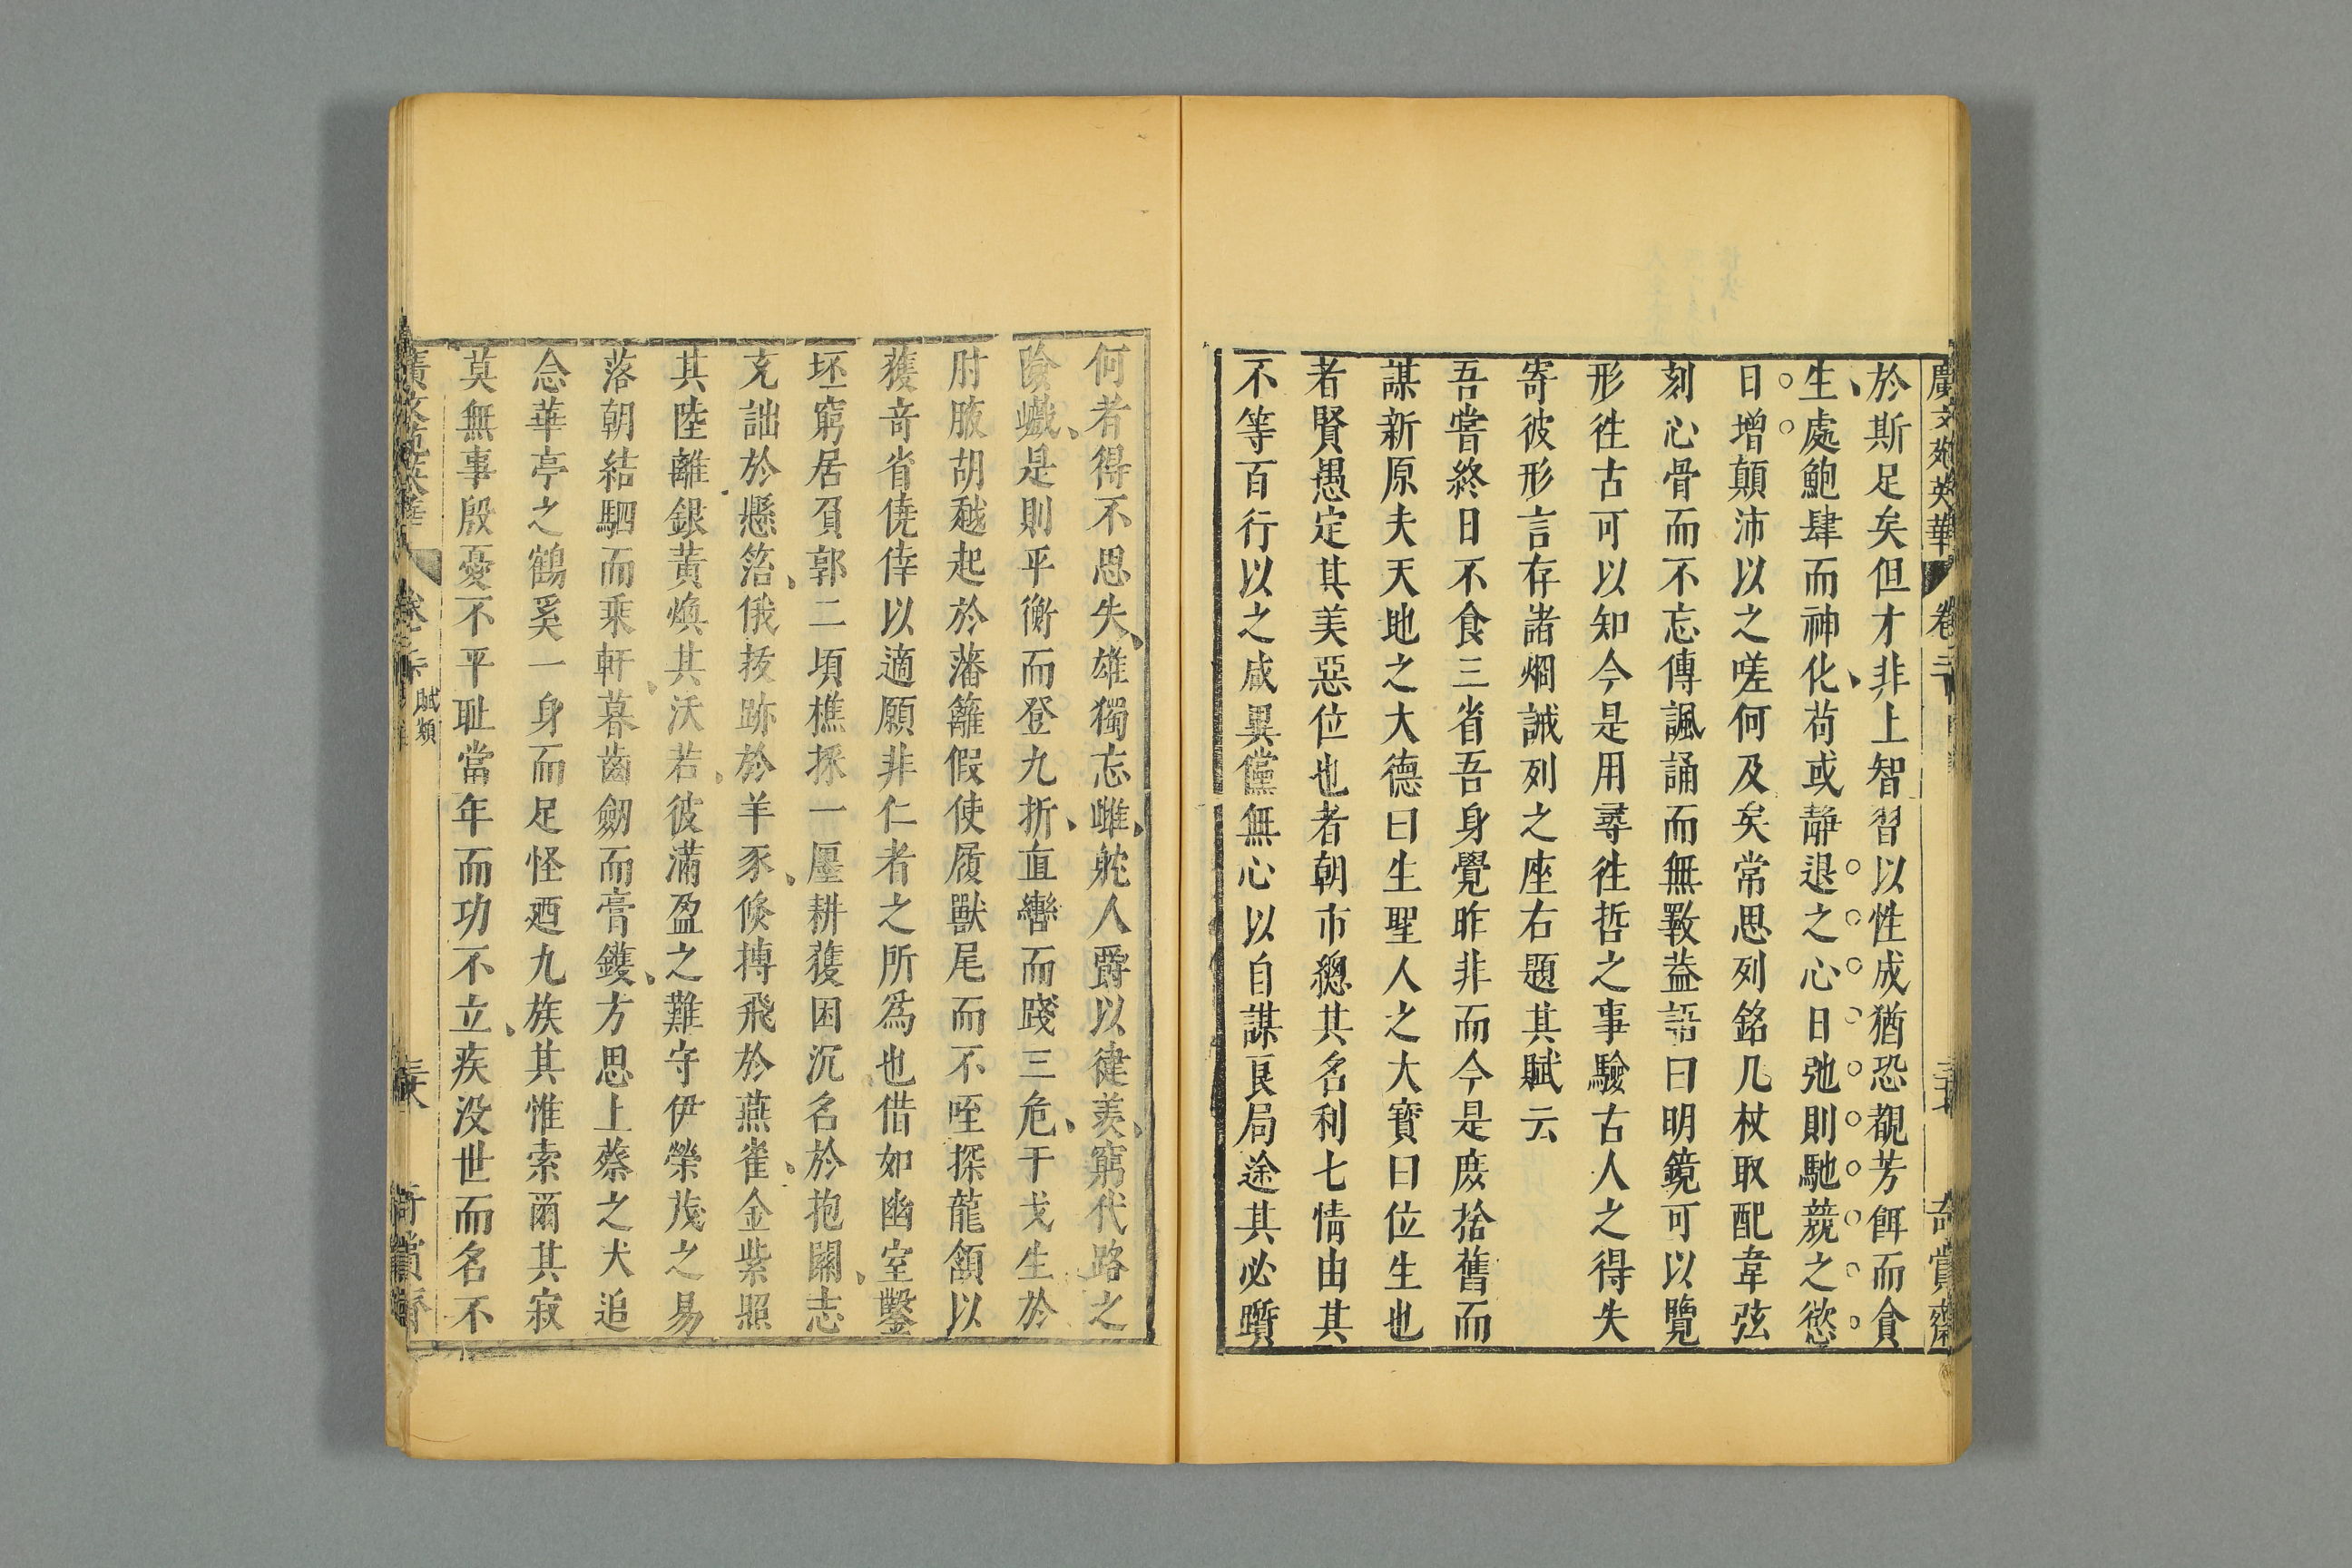 廣文苑英華 卷二十 奇賞齋
於斯足矣但才非上智習以性成猶恐覩芳餌而貪
生處鮑肆而神化苟或靜退之心日弛則馳競之慾
日增顛沛以之嗟何及矣常思列銘几杖取配韋弦
刻心骨而不忘傳諷誦而無斁葢語曰明鏡可以覽
形徃古可以知今是用尋徃哲之事驗古人之得失
寄彼形言存諸烱誡列之座右題其賦云
吾嘗終日不食三省吾身覺昨非而今是庻捨舊而
謀新原夫天地之大德曰生聖人之大寳曰位生也
者賢愚定其美惡位也者朝市總其名利七情由其
不等百行以之咸異儻無心以自謀良局途其必躓
何者得不思失雄獨忘雌貤人爵以徤羙窮代路之
險巇是則平衡而登九折直轡而踐三危干戈生於
肘腋胡越起於藩籬假使履獸尾而不咥探龍頷以
獲竒省僥倖以適願非仁者之所爲也借如幽室鑿
坯窮居負郭二頃樵採一廛耕獲困沉名於抱關志
充詘於懸箔俄拔跡於羊豕倏摶飛於燕雀金紫照
其陸離銀黄煥其沃若彼滿盈之難守伊榮茂之易
落朝結駟而乘軒暮齒劒而膏鑊方思上蔡之犬追
念華亭之鶴奚一身而足怪迺九族其惟索爾其寂
莫無事殷憂不平耻當年而功不立疾没世而名不
廣文苑英華 賦類